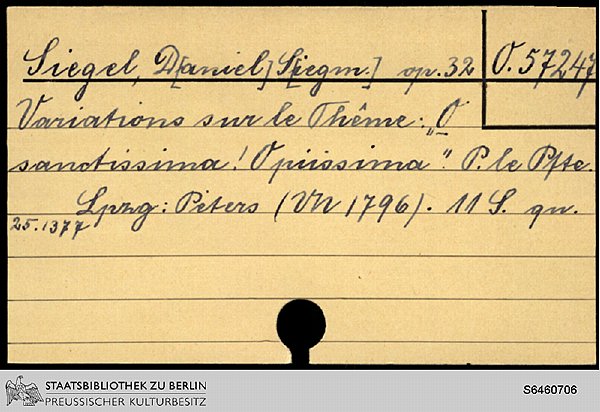 Siegel, D[aniel] S[iegm.] op. 32 O. 57247
Variations sur le Thême: „O
sanctissima! O piissima“. P. le Pfte.
Lpzg: Peters (VN 1796). 11 S. qu.
25.1377
STAATSBIBLIOTHEK ZU BERLIN
PREUSSISCHER KULTURBESITZ
S6460706